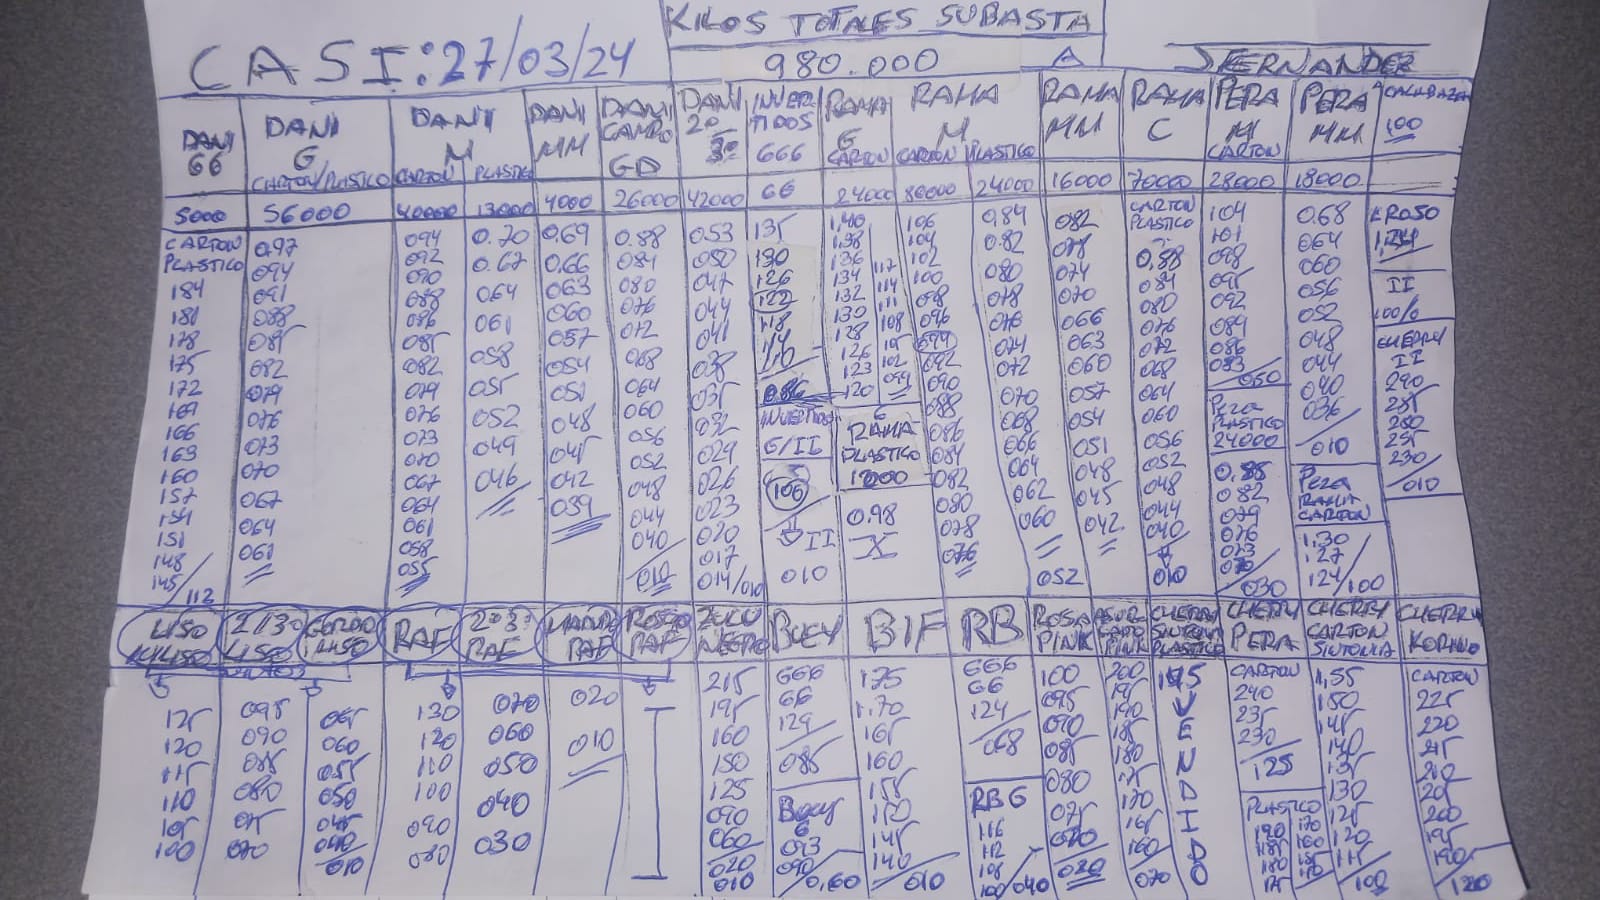 KILOS TOTALES SUBASTA
CASI: 27/03/24
980.000
A
JFERNANDEZ
DANI 66
DANI G CARTON/PLASTICO
DANI M CARTON PLASTICO
DANI MM
DANI CAMPO GD
DANI 20
INVERTIDOS 666
RAMA G CARTON
RAMA M CARTON PLASTICO
RAMA MM
RAMA C
PERA M CARTON
PERA MM
CALABAZA 100
5000 56000 40000 13000 4000 26000 42000 66 24000 86000 24000 16000 70000 28000 18000
CARTON PLASTICO
184
181
178
175
172
169
166
163
160
157
154
151
148
145/112
0.97
094
091
088
085
082
079
076
073
070
067
064
061
094
092
090
088
086
085
082
079
076
073
070
067
064
061
058
055
0.70
0.67
064
061
058
055
052
049
046
0.69
0.66
063
060
057
054
051
048
045
042
039
0.88
084
080
076
072
068
064
060
056
052
048
044
040
010
053
050
047
044
041
038
035
032
029
026
023
020
017
014/010
135
130
126
122
118
0.86
INVERTIDOS
G/II
106
II
010
1,40
1,38
136
134
132
130
128
126
123
120
117
114
111
108
105
102
099
G
RAMA
PLASTICO
0.98
X
106
104
102
100
098
096
094
092
090
088
086
084
082
080
078
076
0.84
0.82
080
078
076
074
072
070
068
066
064
062
060
052
082
078
074
070
066
063
060
057
054
051
048
045
042
CARTON
PLASTICO
0,88
084
080
076
072
068
064
060
056
052
048
044
040
010
104
101
098
095
092
089
086
083
060
PERA
PLASTICO
24000
0,85
082
079
076
073
070
030
0.68
064
060
056
052
048
044
040
036
010
PERA
RAMA
CARTON
1,30
127
124/100
KROSO
II
100%
CHERRY
II
290
285
280
255
230
010
LISO M/LISO
2/130 LISO
GORDO LISO
RAF
2030 RAF
MANO RAF
ROSADO RAF
ZULU NEGRO
BUEY
BIF
RB
ROSA PINK
ASUR CATO PINK
CHERRY SINTONIA PLASTICO
CHERRY PERA
CHERRY CARTON SINTONIA
CHERRY KORINO
125
120
115
110
105
100
095
090
085
080
075
070
065
060
055
050
045
040
010
130
120
110
100
090
080
070
060
050
040
030
020
010
215
195
160
150
125
090
060
020
010
666
66
129
085
BUEY
G
093
090/0,60
1.75
1.70
165
160
155
150
145
140/010
666
66
124
068
RB G
116
112
108
100/040
100
095
090
085
080
075
070
020
200
195
190
185
180
175
170
165
160
070
195
VENDIDO
CARTON
240
235
230
125
PLASTICO
190
185
180
175
170
160
1,55
150
145
140
135
130
125
120
115
100
CARTON
225
220
215
210
205
200
195
190
120